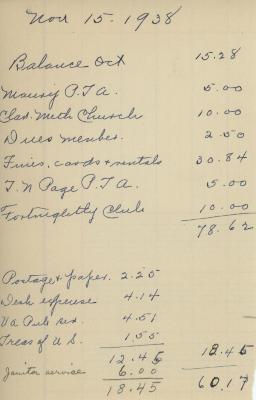 Nov 15. 1938
Balance Oct 15.28
Maury P.T.A. 5.00
Clar. Meth Church 10.00
Dues member. 2.50
Fines, cards & rentals 30.84
T. N Page P.T.A. 5.00
Fortnightly Club 10.00
78.62
Postage & paper. 2.25
Desk expense 4.14
Va Pub ser. 4.51
Treas of U.S. 1.55
12.45 18.45
Janitor service 6.00
18.45 60.17